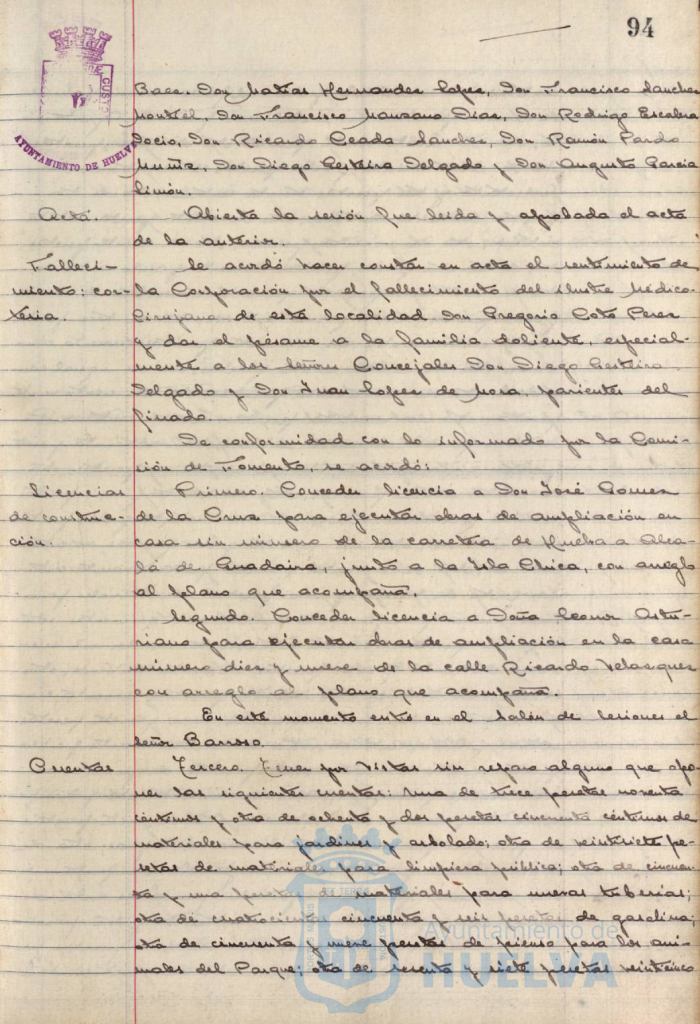 94
AYUNTAMIENTO DE HUELVA
Baez. Don Matías Hernandez Lopez, Don Francisco Sanchez
Montiel, Don Francisco Manzano Diaz, Don Rodrigo Escalera
Socio, Don Ricardo Ceada Sanchez, Don Ramón Pardo
Muñiz, Don Diego Delgado y Don Augusto Garcia
Limón.
Acta. Abierta la sesión fue leida y aprobada el acta
de la anterior.
Falleci- Se acordó hacer constar en acta el sentimiento de
miento: cor- la Corporación por el fallecimiento del ilustre Médico-
tesia. Cirujano de esta localidad Don Gregorio Coto Perez
y dar el pésame a la familia doliente, especial-
mente a los Señores Concejales Don Diego
Delgado y Don Juan Lopez de Mora, parientes del
finado.
De conformidad con lo informado por la Comi-
sión de Fomento, se acordó:
Licencias Primero. Conceder licencia a Don José Gomez
de construc- de la Cruz para ejecutar obras de ampliación en
ción. casa sin número de la carretera de Huelva a Alca-
lá de Guadaira, junto a la Isla Chica, con arreglo
al plano que acompaña.
Segundo. Conceder licencia a Doña Leonor Astu-
riano para ejecutar obras de ampliación en la casa
número diez y nueve de la calle Ricardo Velazquez
con arreglo al plano que acompaña.
En este momento entró en el Salón de Sesiones el
Señor Barroso.
Cuentas Tercero. Tener por vistas sin reparo alguno que opo-
ner las siguientes cuentas: una de trece pesetas noventa
céntimos y otra de ochenta y dos pesetas cincuenta céntimos de
materiales para jardines y arbolado; otra de veintisiete pe-
setas de materiales para limpieza pública; otra de cincuen-
ta y una pesetas de materiales para nuevas tuberías;
otra de cuatrocientas cincuenta y seis pesetas de gasolina;
otra de cincuenta y nueve pesetas de pienso para los ani-
males del Parque; otra de sesenta y siete pesetas veinticinco
Ayuntamiento de
HUELVA